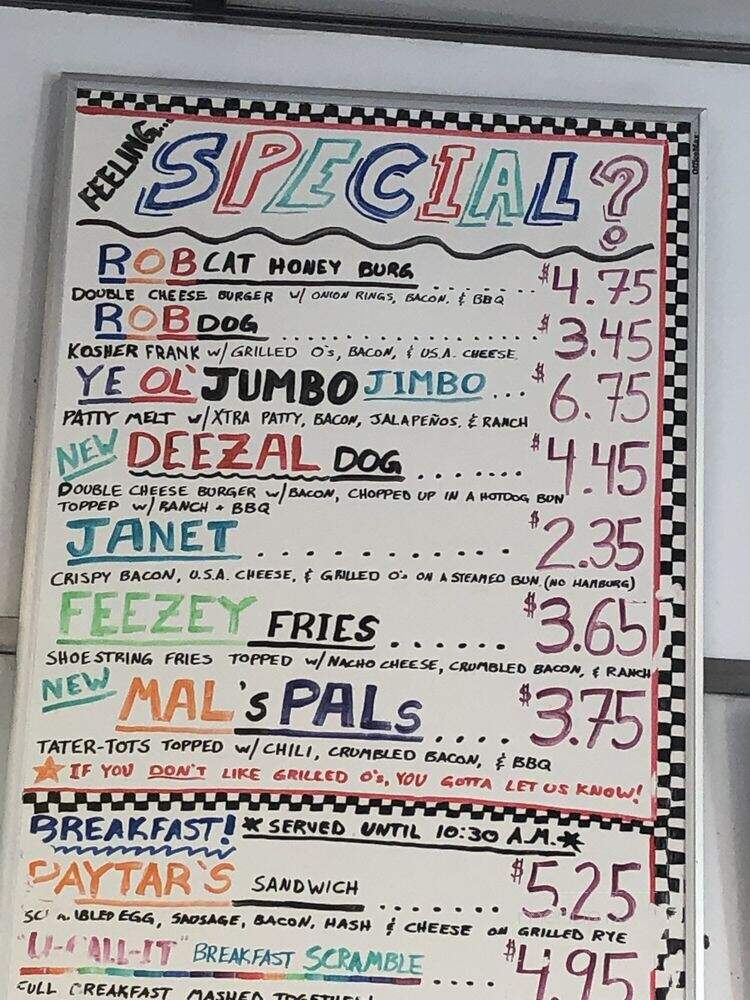 OfficeMax
FEELING... SPECIAL?
ROBCAT HONEY BURG ........ $4.75
DOUBLE CHEESE BURGER W/ ONION RINGS, BACON, & BBQ
ROB DOG .................... $3.45
KOSHER FRANK W/ GRILLED O's, BACON, & U.S.A. CHEESE
YE OL' JUMBO JIMBO ... $6.75
PATTY MELT W/ XTRA PATTY, BACON, JALAPEÑOS, & RANCH
NEW DEEZAL DOG ....... $4.45
DOUBLE CHEESE BURGER W/ BACON, CHOPPED UP IN A HOTDOG BUN
TOPPED W/ RANCH + BBQ
JANET ............. $2.35
CRISPY BACON, U.S.A. CHEESE, & GRILLED O's ON A STEAMED BUN (NO HAMBURG)
FEEZEY FRIES ...... $3.65
SHOESTRING FRIES TOPPED W/ NACHO CHEESE, CRUMBLED BACON, & RANCH
NEW MAL's PALs .... $3.75
TATER-TOTS TOPPED W/ CHILI, CRUMBLED BACON, & BBQ
IF YOU DON'T LIKE GRILLED O's, YOU GOTTA LET US KNOW!
BREAKFAST! *SERVED UNTIL 10:30 A.M.*
PAYTAR'S SANDWICH ....... $5.25
EGG, SAUSAGE, BACON, HASH & CHEESE ON GRILLED RYE
"U-CALL-IT" BREAKFAST SCRAMBLE .... $4.95
FULL BREAKFAST MASHED TOGETHER!